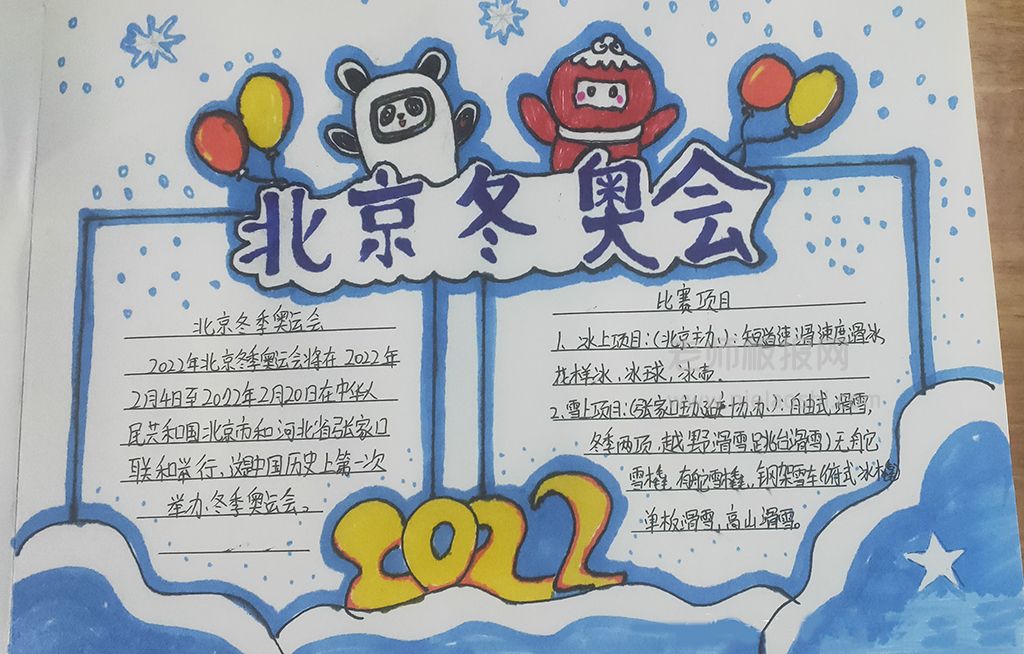 北京冬奥会
北京冬季奥运会
2022年北京冬季奥运会将在2022年
2月4日至2022年2月20日在中华人
民共和国北京市和河北省张家口
联和举行，这是中国历史上第一次
举办冬季奥运会。
比赛项目
1、水上项目：(北京主办)：短道速滑速度滑冰
花样冰，冰球，冰壶.
2、雪上项目：(张家口主办：自由式滑雪，
冬季两项，越野滑雪跳台滑雪)无舵
雪橇，有舵雪橇，钢架雪车(俯式冰橇)
单板滑雪，高山滑雪。
2022
老师板报网